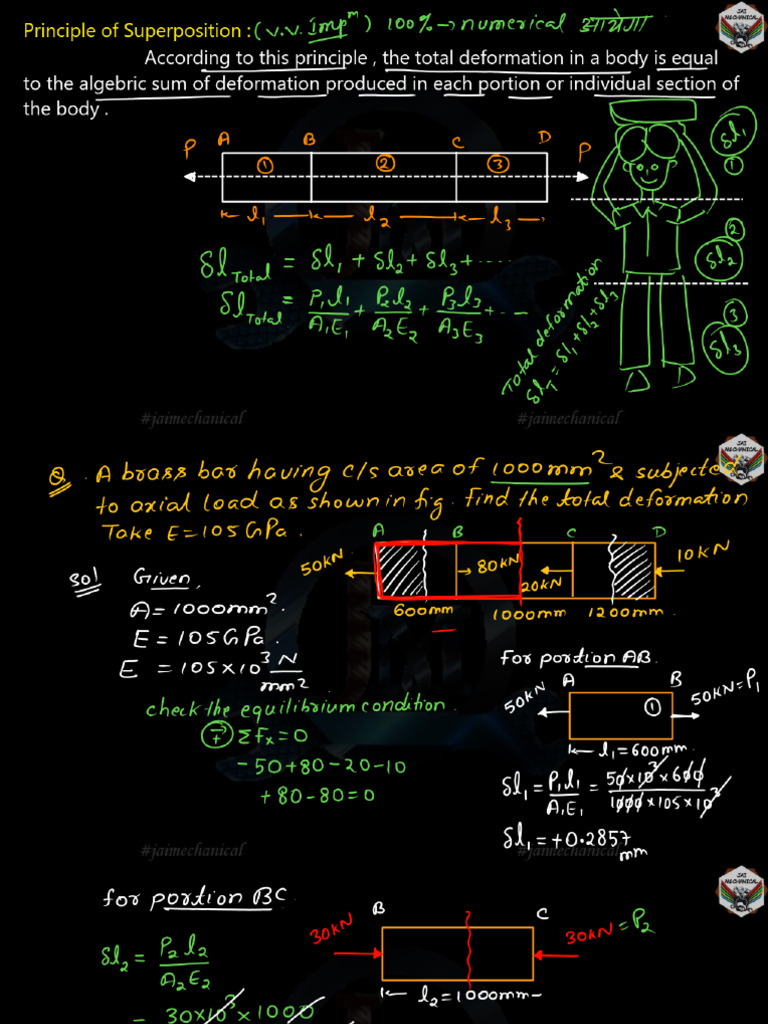 Principle of Superposition : (v.v. Impᵐ) 100% → numerical आयेगा
According to this principle , the total deformation in a body is equal
to the algebric sum of deformation produced in each portion or individual section of
the body .
P A B C D P
① ② ③
l₁ l₂ l₃
δl₁
①
②
δl₂
③
δl₃
δl Total = δl₁ + δl₂ + δl₃ + ----
δl Total = P₁l₁/A₁E₁ + P₂l₂/A₂E₂ + P₃l₃/A₃E₃ + --
Total deformation
δl_T = δl₁ + δl₂ + δl₃
#jaimechanical
#jaimechanical
JAI
MECHANICAL
Q. A brass bar having c/s area of 1000mm² & subjected
to axial load as shown in fig. find the total deformation
Take E = 105 GPa .
A B C D
50kN → 80kN 20kN 10kN
600mm 1000mm 1200mm
Sol Given,
A = 1000mm².
E = 105 GPa .
E = 105×10³ N/mm²
check the equilibrium condition .
⊕ Σfx = 0
-50+80-20-10
+80-80=0
for portion AB.
A B
50kN ① 50kN = P₁
l₁ = 600mm
δl₁ = P₁l₁/A₁E₁ = 50×10³×600/1000×105×10³
δl₁ = +0.2857 mm
#jaimechanical
#jaimechanical
JAI
MECHANICAL
for portion BC
B C
30kN 30kN = P₂
l₂ = 1000mm
δl₂ = P₂l₂/A₂E₂
= 30×10³×1000